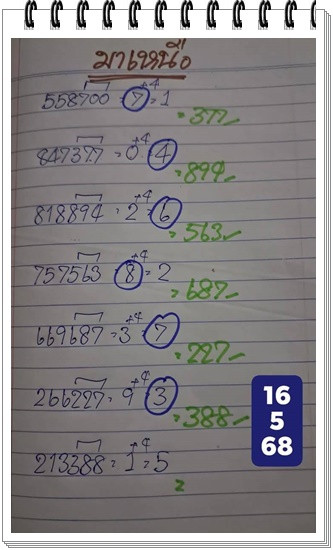 มาเหนือ
558700 = 7 +4 = 1
= 377
847377 = 0 +4 4
= 894
818894 = 2 +4 = 6
= 563
757563 = 8 +4 = 2
= 687
669687 = 3 +4 = 7
= 227
266227 = 9 +4 = 3
= 388
213388 = 1 +4 = 5
=
16
5
68